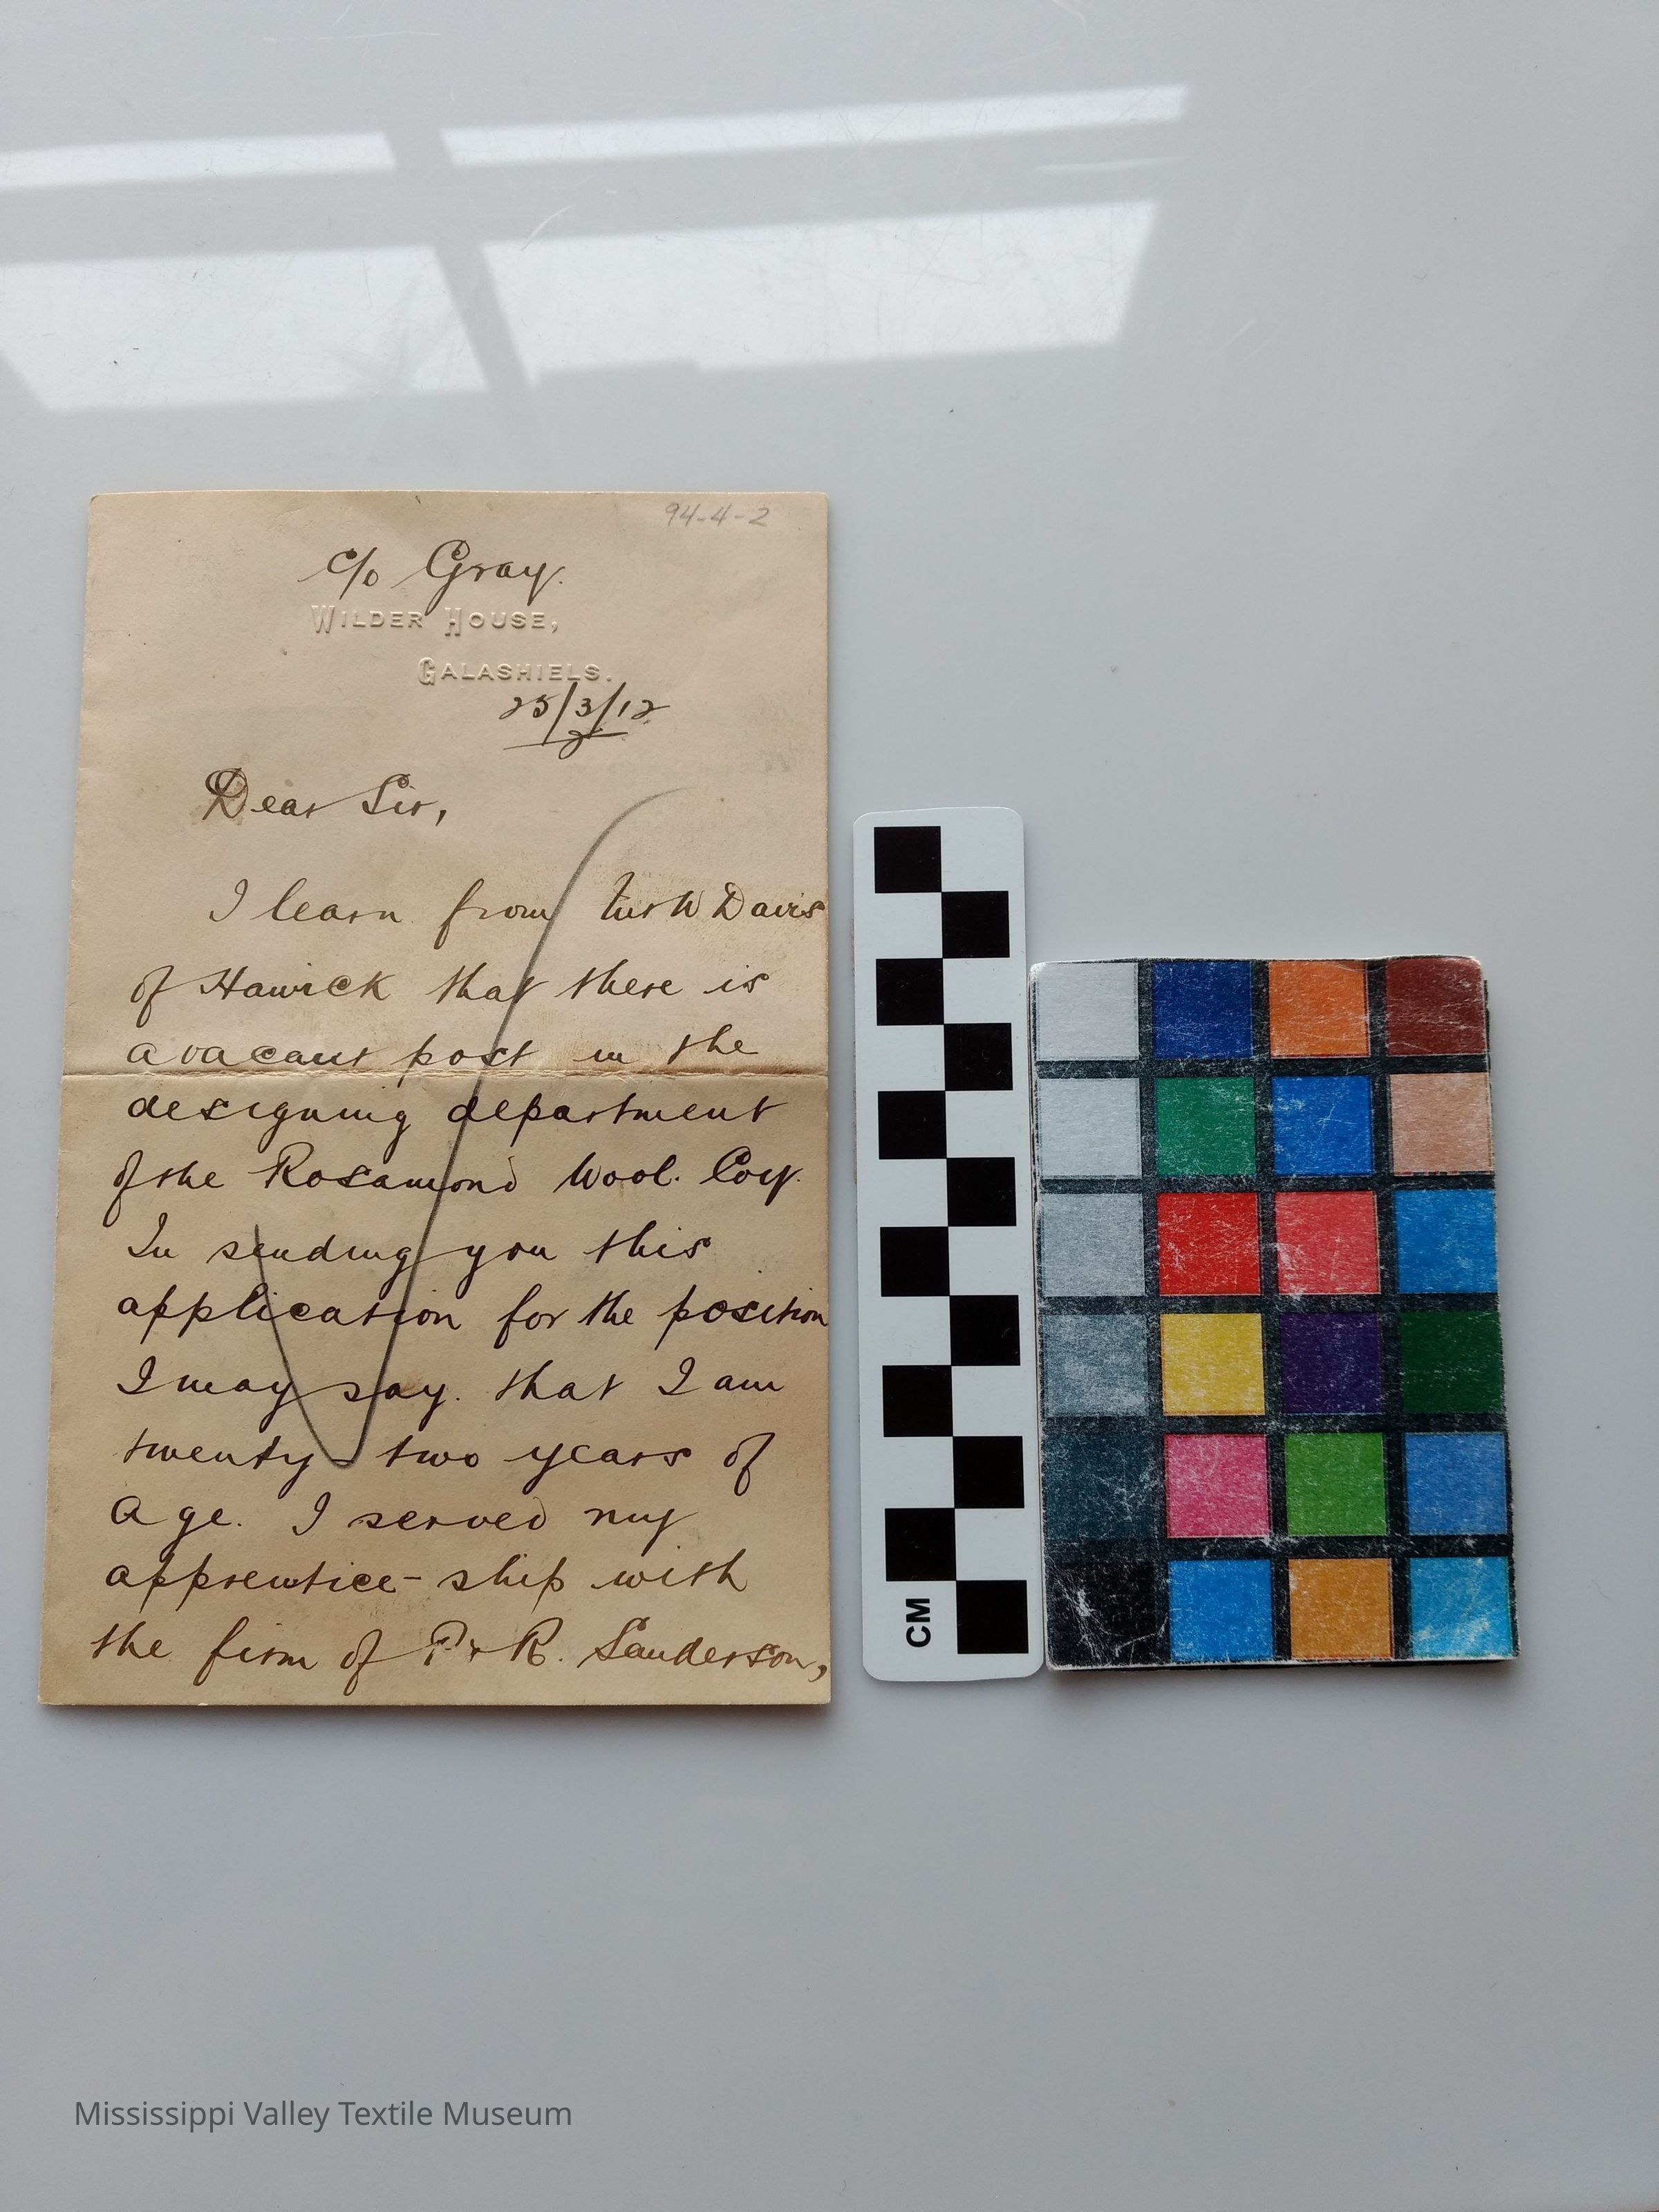 94-4-2
c/o Gray.
WILDER HOUSE,
GALASHIELS.
25/3/12
Dear Sir,
I learn from Davis
of Hawick that there is
a vacant post in the
designing department
of the Rosamond Wool. Coy.
In sending you this
application for the position
I may say. that I am
twenty-two years of
age. I served my
apprentice-ship with
the firm of P & R. Sanderson,
CM
Mississippi Valley Textile Museum